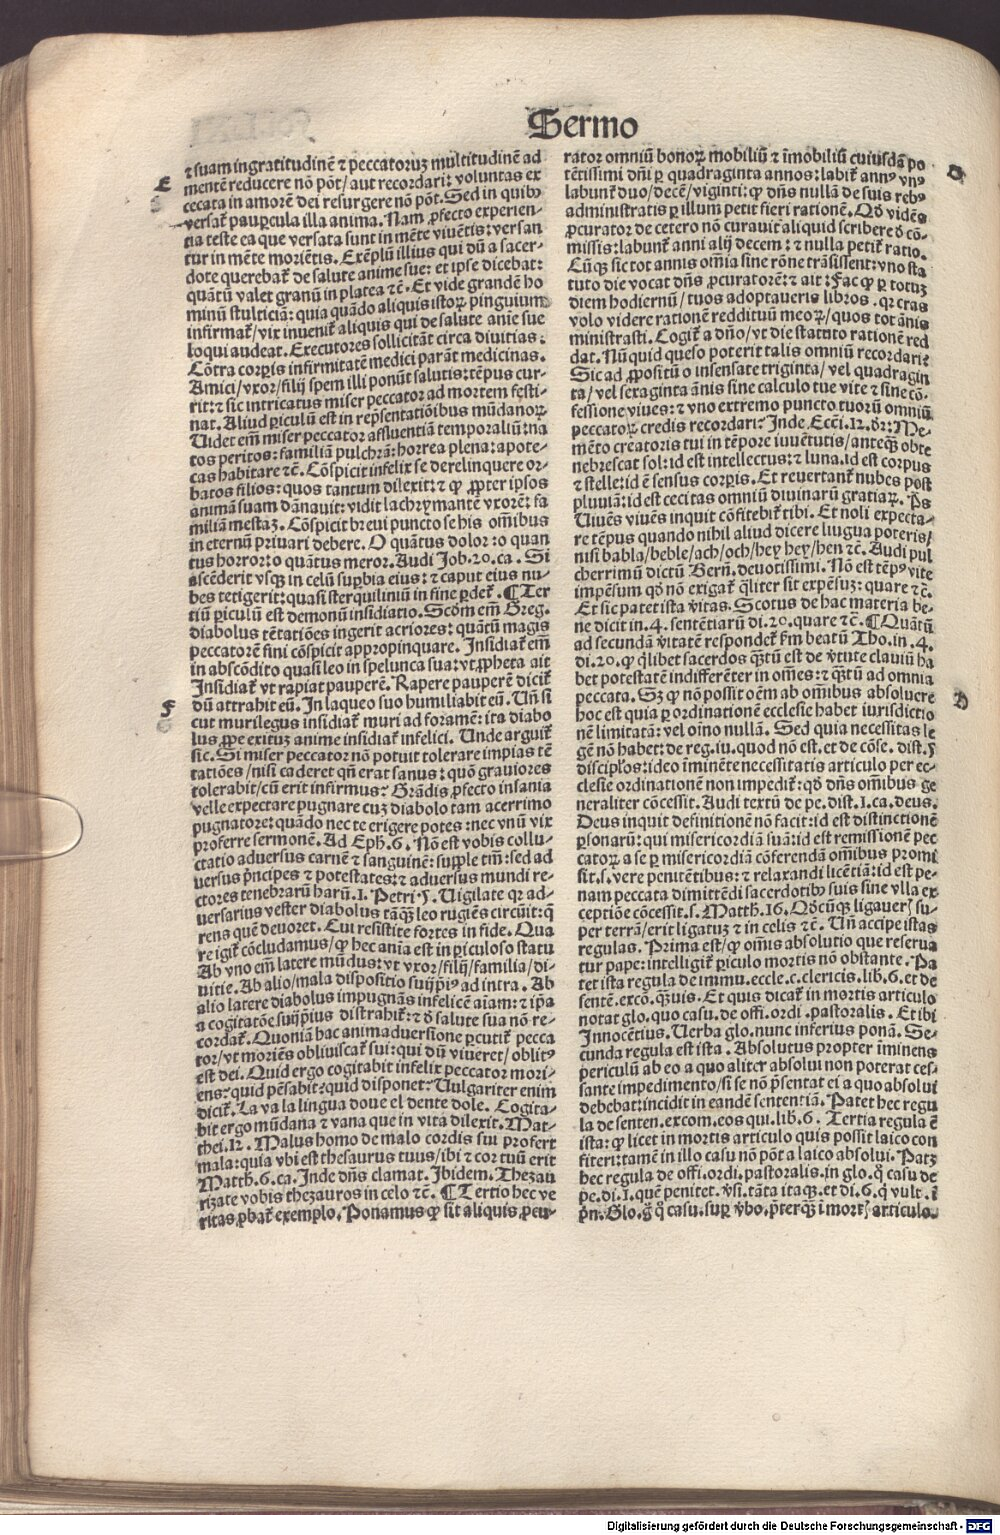 Sermo
⁊ suam ingratitudinē ⁊ peccatoruꝫ multitudinē ad
E
mentē reducere nō pōt/ aut recordari: voluntas ex
cecata in amorē dei resurgere nō pōt. Sed in quibꝰ
versat᷑ paup̄cula illa anima. Nam ꝓfecto experien-
tia teste ea que versata sunt in mēte viuētis: versan
tur in mēte moriētis. Exēplū illius qui dū a sacer-
dote querebat᷑ de salute anime sue: et ipse dicebat:
quātū valet granū in platea ⁊c̄. Et vide grandē ho
minū stulticiā: quia quādo aliquis istoꝝ pinguium
infirmat᷑/ vix inuenit᷑ aliquis qui de salute anīe sue
loqui audeat. Executores sollicitāt circa diuitias:
Cōtra corꝑis infirmitatē medici parāt medicinas.
Amici/ vxor/ filij spem illi ponūt salutis: tēpus cur-
rit: ⁊ sic intricatus miser peccator ad mortem festi-
nat. Aliud ꝑiculū est in rep̄sentatiōibus mūdanoꝝ
Videt em̄ miser peccator affluentiā temporaliū: na
tos peritos: familiā pulchrā: horrea plena: apote-
cas habitare ⁊c̄. Cōspicit infelix se derelinquere or-
batos filios: quos tantum dilexit: ⁊ ꝙ ꝓpter ipsos
animā suam dānauit: vidit lachrymantē vxorē: fa
miliā mestaꝫ. Cōspicit breui puncto se his om̄ibus
in eternū priuari debere. O quātus dolor: o quan
tus horror: o quātus meror. Audi Job. 20. ca. Si
ascēderit vsqꝫ in celū suꝑbia eius: ⁊ caput eius nu-
bes tetigerit: quasi sterquiliniū in fine ꝑdet᷑. ¶ Ter
tiū ꝑiculū est demonū insidiatio. Scd̄m em̄ Greg.
diabolus tētatiōes ingerit acriores: quātū magis
peccatorē fini cōspicit appropinquare. Insidiat᷑ em̄
in abscōdito quasi leo in spelunca sua: vt ꝓpheta ait
Insidiat᷑ vt rapiat pauperē. Rapere pauperē dicit᷑
F
dū attrahit eū. In laqueo suo humiliabit eū. Un̄ si
cut murilegus insidiat᷑ muri ad foramē: ita diabo
lus ꝓpe exituꝫ anime insidiat᷑ infelici. Unde arguit᷑
sic. Si miser peccator nō potuit tolerare impias tē
tatiōes/ nisi caderet qn̄ erat sanus: quō grauiores
tolerabit/ cū erit infirmus? Grādis ꝓfecto insania
velle expectare pugnare cuꝫ diabolo tam acerrimo
pugnatore: quādo nec te erigere potes: nec vnū vix
proferre sermonē. Ad Eph. 6. Nō est vobis collu-
ctatio aduersus carnē ⁊ sanguinē: supple tm̄: sed ad
uersus p̄ncipes ⁊ potestates: ⁊ aduersus mundi re-
ctores tenebrarū harū. 1. Petri 5. Vigilate qꝛ ad-
uersarius vester diabolus tāqꝫ leo rugiēs circūit: q̄
rens quē deuoret. Cui resistite fortes in fide. Qua
re igit᷑ cōcludamus/ ꝙ hec anīa est in ꝑiculoso statu
Ab vno em̄ latere mūdus: vt vxor/ filij/ familia/ di-
uitie. Ab alio/ mala dispositio suiip̄iꝰ ad intra. Ab
alio latere diabolus impugnās infelicē aīam: ⁊ ip̄a
a cogitatōe suiip̄ius distrahit᷑: ⁊ d̄ salute sua nō re-
cordat᷑. Quoniā hac animaduersione ꝑcutit᷑ pecca
tor/ vt moriēs obliuiscat᷑ sui: qui dū viueret/ oblitꝰ
est dei. Quid ergo cogitabit infelix peccator mori-
ens: quid pēsabit: quid disponet: Vulgariter enim
dicit᷑. La va la lingua doue el dente dole. Cogita-
bit ergo mūdana ⁊ vana que in vita dilexit. Mat-
thei. 12. Malus homo de malo cordis sui profert
mala: quia vbi est thesaurus tuus/ ibi ⁊ cor tuū erit
Matth. 6. ca. Inde dn̄s clamat. Ibidem. Thezau
rizate vobis thezauros in celo ⁊c̄. ¶ Tertio hec ve
ritas ꝓbat᷑ exemplo. Ponamus ꝙ sit aliquis ꝓcu-
rator omniū bonoꝝ mobiliū ⁊ īmobiliū cuiusdā po
tētissimi dn̄i ꝑ quadraginta annos: labit᷑ annꝰ vnꝰ
labunt᷑ duo/ decē/ viginti: ꝙ dn̄s nullā de suis rebꝰ
administratis ꝑ illum petit fieri rationē. Qd̄ vidēs
ꝓcurator de cetero nō curauit aliquid scribere d̄ cō-
missis: labunt᷑ anni alij decem: ⁊ nulla petit᷑ ratio.
Cūqꝫ sic tot annis om̄ia sine rōne trāsissent: vno sta
tuto die vocat dn̄s ꝓcuratorē: ⁊ ait: Fac ꝙ ꝑ totuꝫ
diem hodiernū/ tuos adoptaueris libros. qꝛ cras
volo videre rationē reddituū meoꝝ/ quos tot ānis
ministrasti. Cogit᷑ a dn̄o/ vt die statuto rationē red
dat. Nū quid queso poterit talis omniū recordari?
Sic ad ꝓpositū o insensate triginta/ vel quadragin
ta/ vel sexaginta ānis sine calculo tue vite ⁊ sine cō-
fessione viues: ⁊ vno extremo puncto tuorū omniū
peccatoꝝ credis recordari? Inde Ecc̄i. 12. dr̄: Me-
mēto creatoris tui in tēpore iuuētutis/ anteqꝫ obte
nebrescat sol: id est intellectus: ⁊ luna. id est corpus
⁊ stelle: id ē sensus corꝑis. Et reuertant᷑ nubes post
pluuiā: id est cecitas omniū diuinarū gratiaꝝ. Ps
Viuēs viuēs inquit cōfitebit᷑ tibi. Et noli expecta-
re tēpus quando nihil aliud dicere liugua poteris/
nisi babla/ beble/ ach/ och/ hey hey/ hen ⁊c̄. Audi pul
cherrimū dictū Bern̄. deuotissimi. Nō est tēpꝰ vite
impēsum qd̄ nō exigat᷑ q̄liter sit expēsuꝫ: quare ⁊c̄.
Et sic patet ista v̄itas. Scotus de hac materia be-
ne dicit in. 4. sentētiarū di. 20. quare ⁊c̄. ¶ Quātū
ad secundā v̄itatē respondet᷑ ẜm beatū Tho. in. 4.
di. 20. ꝙ q̄libet sacerdos q̄tū est de v̄tute clauiū ha
bet potestatē indifferēter in om̄es: ⁊ q̄tū ad omnia
D
peccata. Sꝫ ꝙ nō possit oēm ab om̄ibus absoluere
hoc est quia ꝑ ordinationē ecclesie habet iurisdictio
nē limitatā: vel oīno nullā. Sed quia necessitas le
gē nō habet: de reg. iu. quod nō est. et de cōse. dist. 5
discipl̄os: ideo īminēte necessitatis articulo per ec-
clesie ordinationē non impedit᷑: qd̄ dn̄s om̄ibus ge
neraliter cōcessit. Audi textū de pe. dist. 1. ca. deus.
Deus inquit definitionē nō facit: id est distinctionē
ꝑsonarū: qui misericordiā suā: id est remissionē pec
catoꝝ a se ꝑ misericordiā cōferendā om̄ibus promi
sit. s. vere penitētibus: ⁊ relaxandi licētiā: id est pe-
nam peccata dimittēdi sacerdotibꝰ suis sine vlla ex
ceptiōe cōcessit. s. Matth. 16. Qd̄cūqꝫ ligaueris su-
per terrā/ erit ligatuꝫ ⁊ in celis ⁊c̄. Un̄ accipe istas
regulas. Prima est/ ꝙ om̄is absolutio que reserua
tur pape: intelligit᷑ ꝑiculo mortis nō obstante. Pa
tet ista regula de immu. eccle. c. clericis. lib. 6. et de
sentē. excō. q̄uis. Et quis dicat᷑ in mortis articulo
notat glo. quo casu. de offi. ordi. pastoralis. Et ibi
Innocētius. Verba glo. nunc inferius ponā. Se-
cunda regula est ista. Absolutus propter īminens
periculū ab eo a quo aliter absolui non poterat ces-
sante impedimento/ si se nō p̄sentat ei a quo absolui
debebat: incidit in eandē sententiā. Patet hec regu
la de senten. excom. eos qui. lib. 6. Tertia regula ē
ista: ꝙ licet in mortis articulo quis possit laico con
fiteri: tamē in illo casu nō pōt a laico absolui. Patꝫ
hec regula de offi. ordi. pastoralis. in glo. q̄ casu de
pe. di. 1. quē penitet. v̄si. tāta itaqꝫ. et di. 6. q̄ vult. ī
prin̄. Glo. g̊ q̊ casu. suꝑ v̄bo. p̄terqꝫ ī mortis articulo.
Digitalisierung gefördert durch die Deutsche Forschungsgemeinschaft - DFG